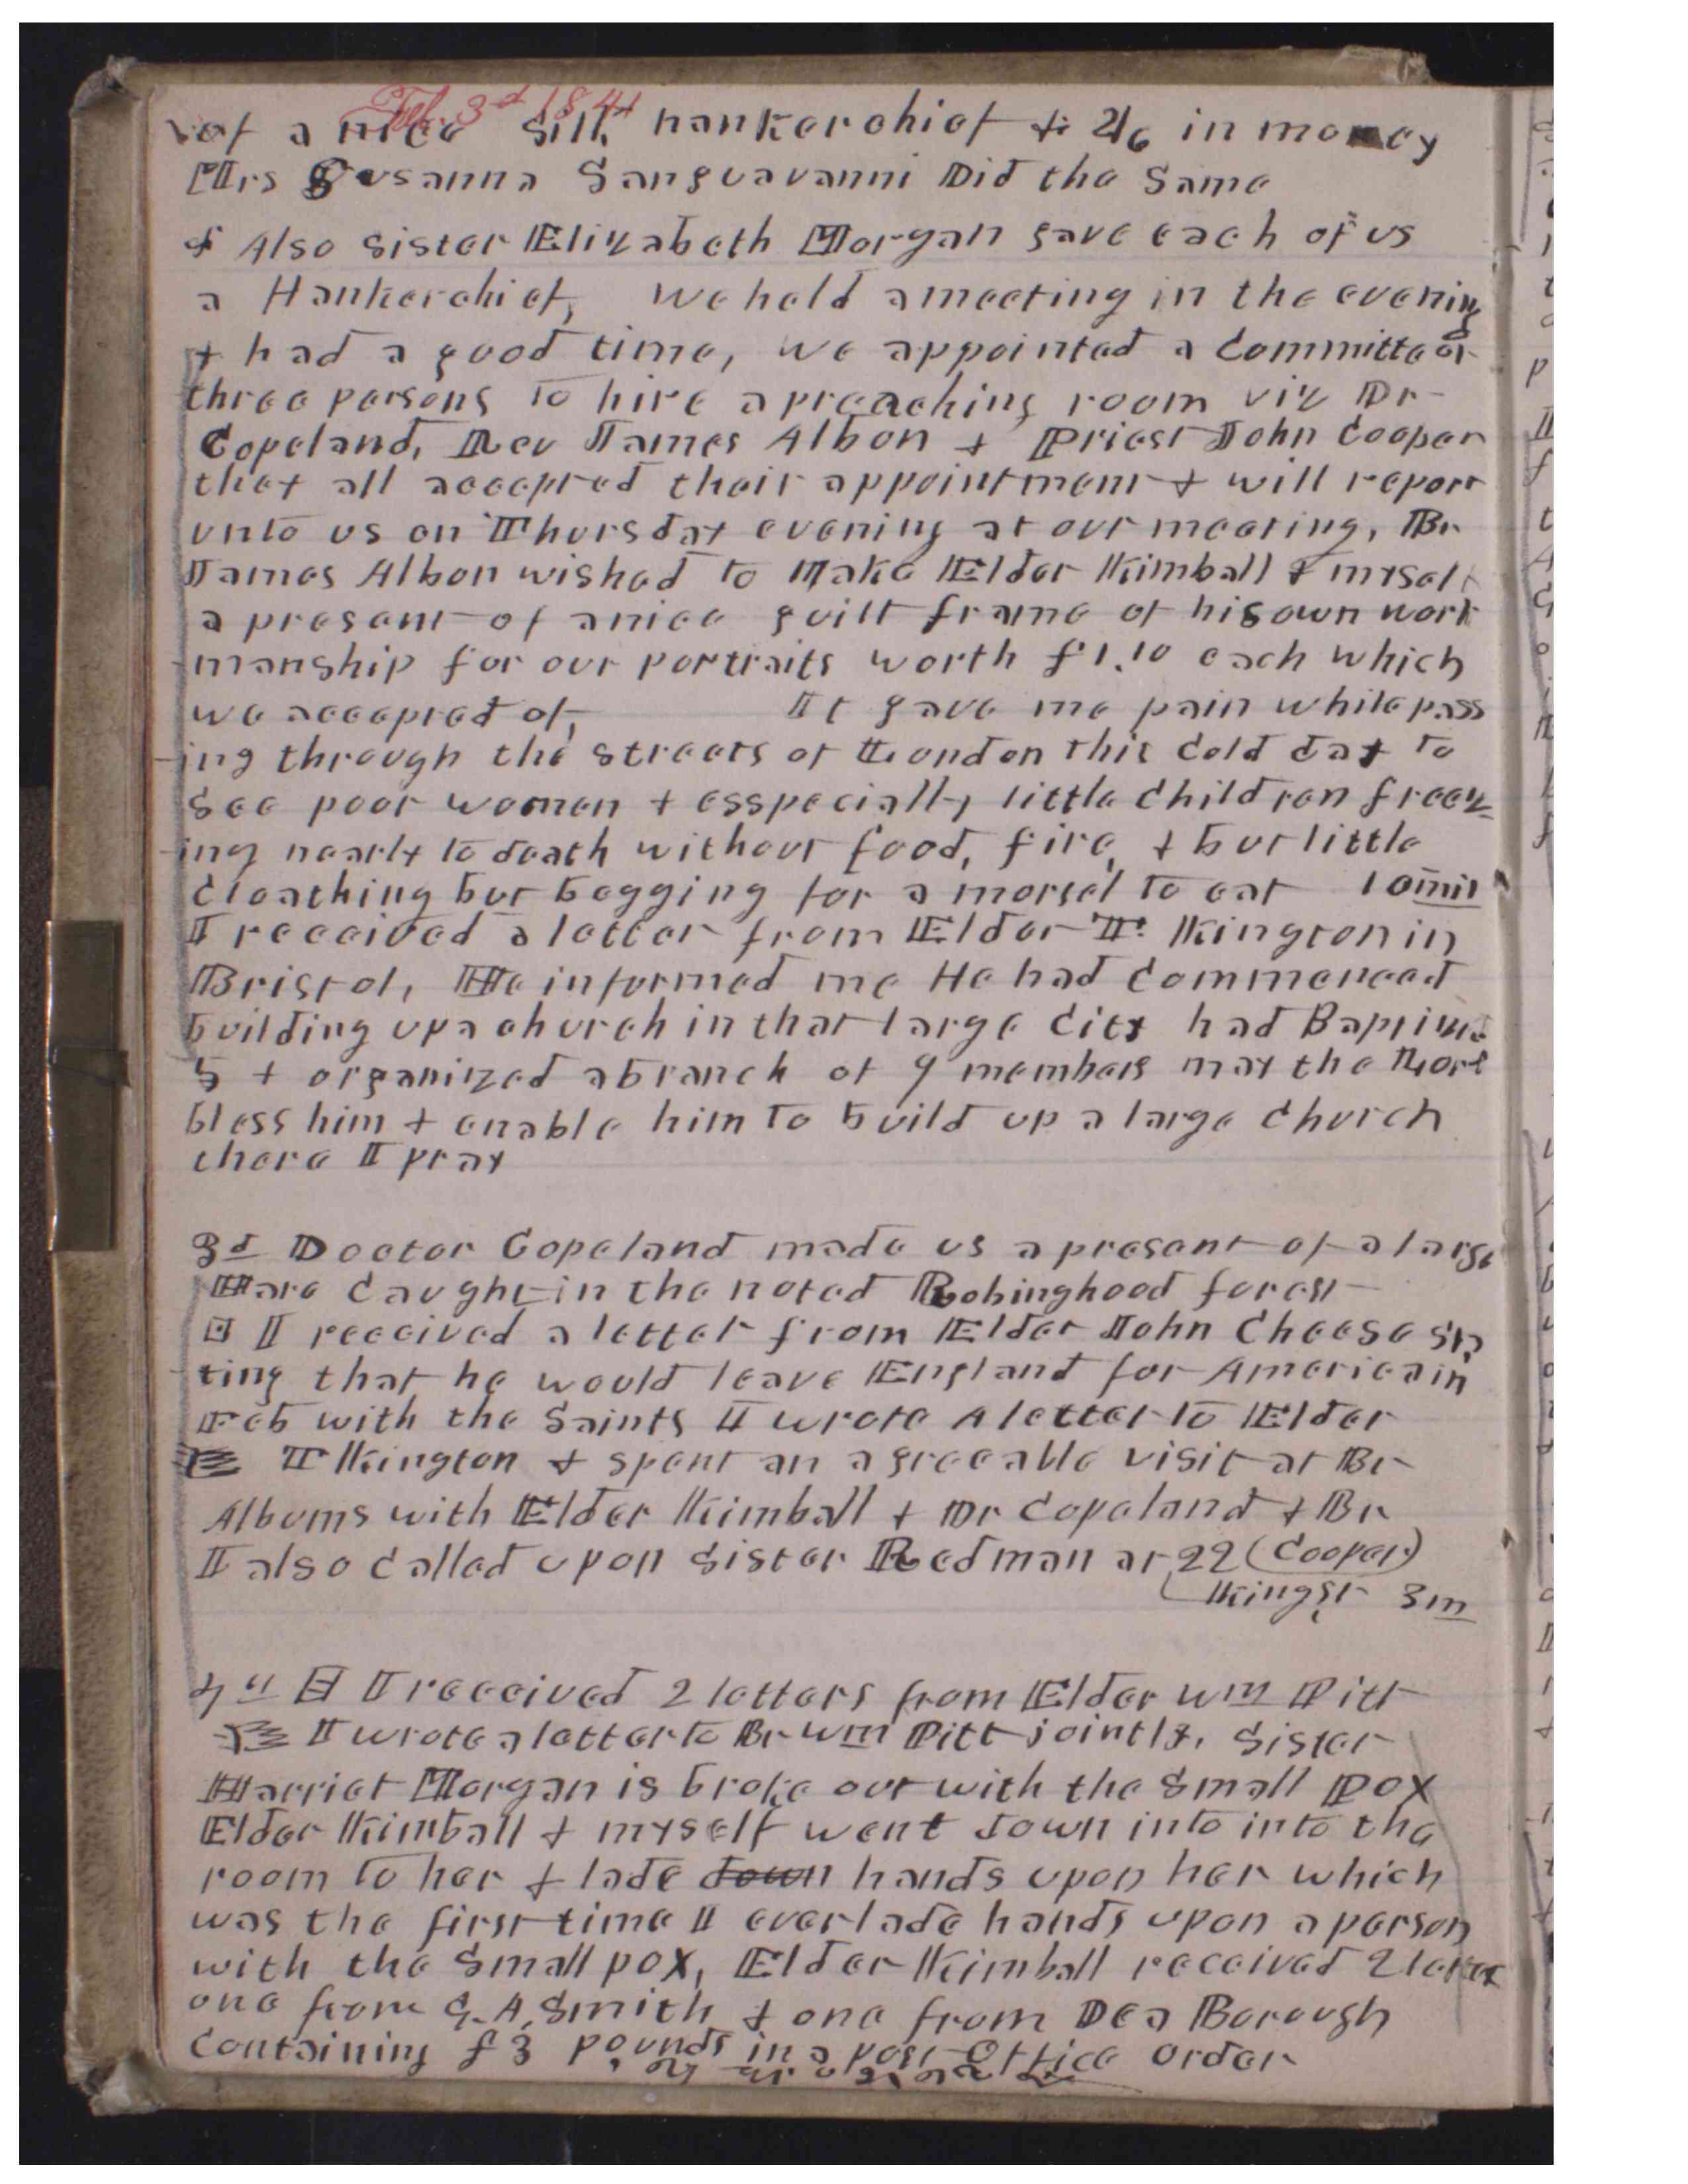 Feb. 3d 1841
of a nice silk hankerchief & 2/6 in money
Mrs Susanna Sanguavanni Did the Same
& Also Sister Elizabeth Morgan gave each of us
a Hankerchief, We held a meeting in the evening
& had a good time, we appointed a Committee of
three persons to hire a preaching room viz Dr
Copeland, Rev James Albon & Priest John Cooper
they all accepted their appointment & will report
unto us on Thursday evening at our meeting, Br
James Albon wished to Make Elder Kimball & myself
a present of a nice guilt frame of his own work
manship for our portraits worth £1.10 each which
we accepted of, It gave me pain while pass
-ing through the streets of London this Cold day to
See poor women & esspecially little Children freez
-ing nearly to death without food, fire, & but little
Cloathing but begging for a morsel to eat 10 mil
I received a letter from Elder T. Kington in
Bristol, He informed me He had Commenced
building up a church in that large City had Baptized
5 & organized a branch of 9 members may the Lord
bless him & enable him to build up a large Church
there I pray
3d Doctor Copeland made us a present of a large
Hare Caught in the noted Robinghood forest
I received a letter from Elder John Cheese sta
-ting that he would leave England for America in
Feb with the Saints I wrote A letter to Elder
T Kington & spent an agreeable visit at Br
Albums with Elder Kimball & Dr Copeland & Br
I also Called upon Sister Redman at 22 (Cooper)
King St 3 m
4th I received 2 letters from Elder Wm Pitt
I wrote a letter to Br Wm Pitt jointly, Sister
Harriet Morgan is broke out with the Small Pox
Elder Kimball & myself went down into into the
room to her & lade down hands upon her which
was the first time I ever lade hands upon a person
with the Small pox, Elder Kimball received 2 letters
one from G. A. Smith & one from Dea Borough
Containing £3 pounds in a post Office order